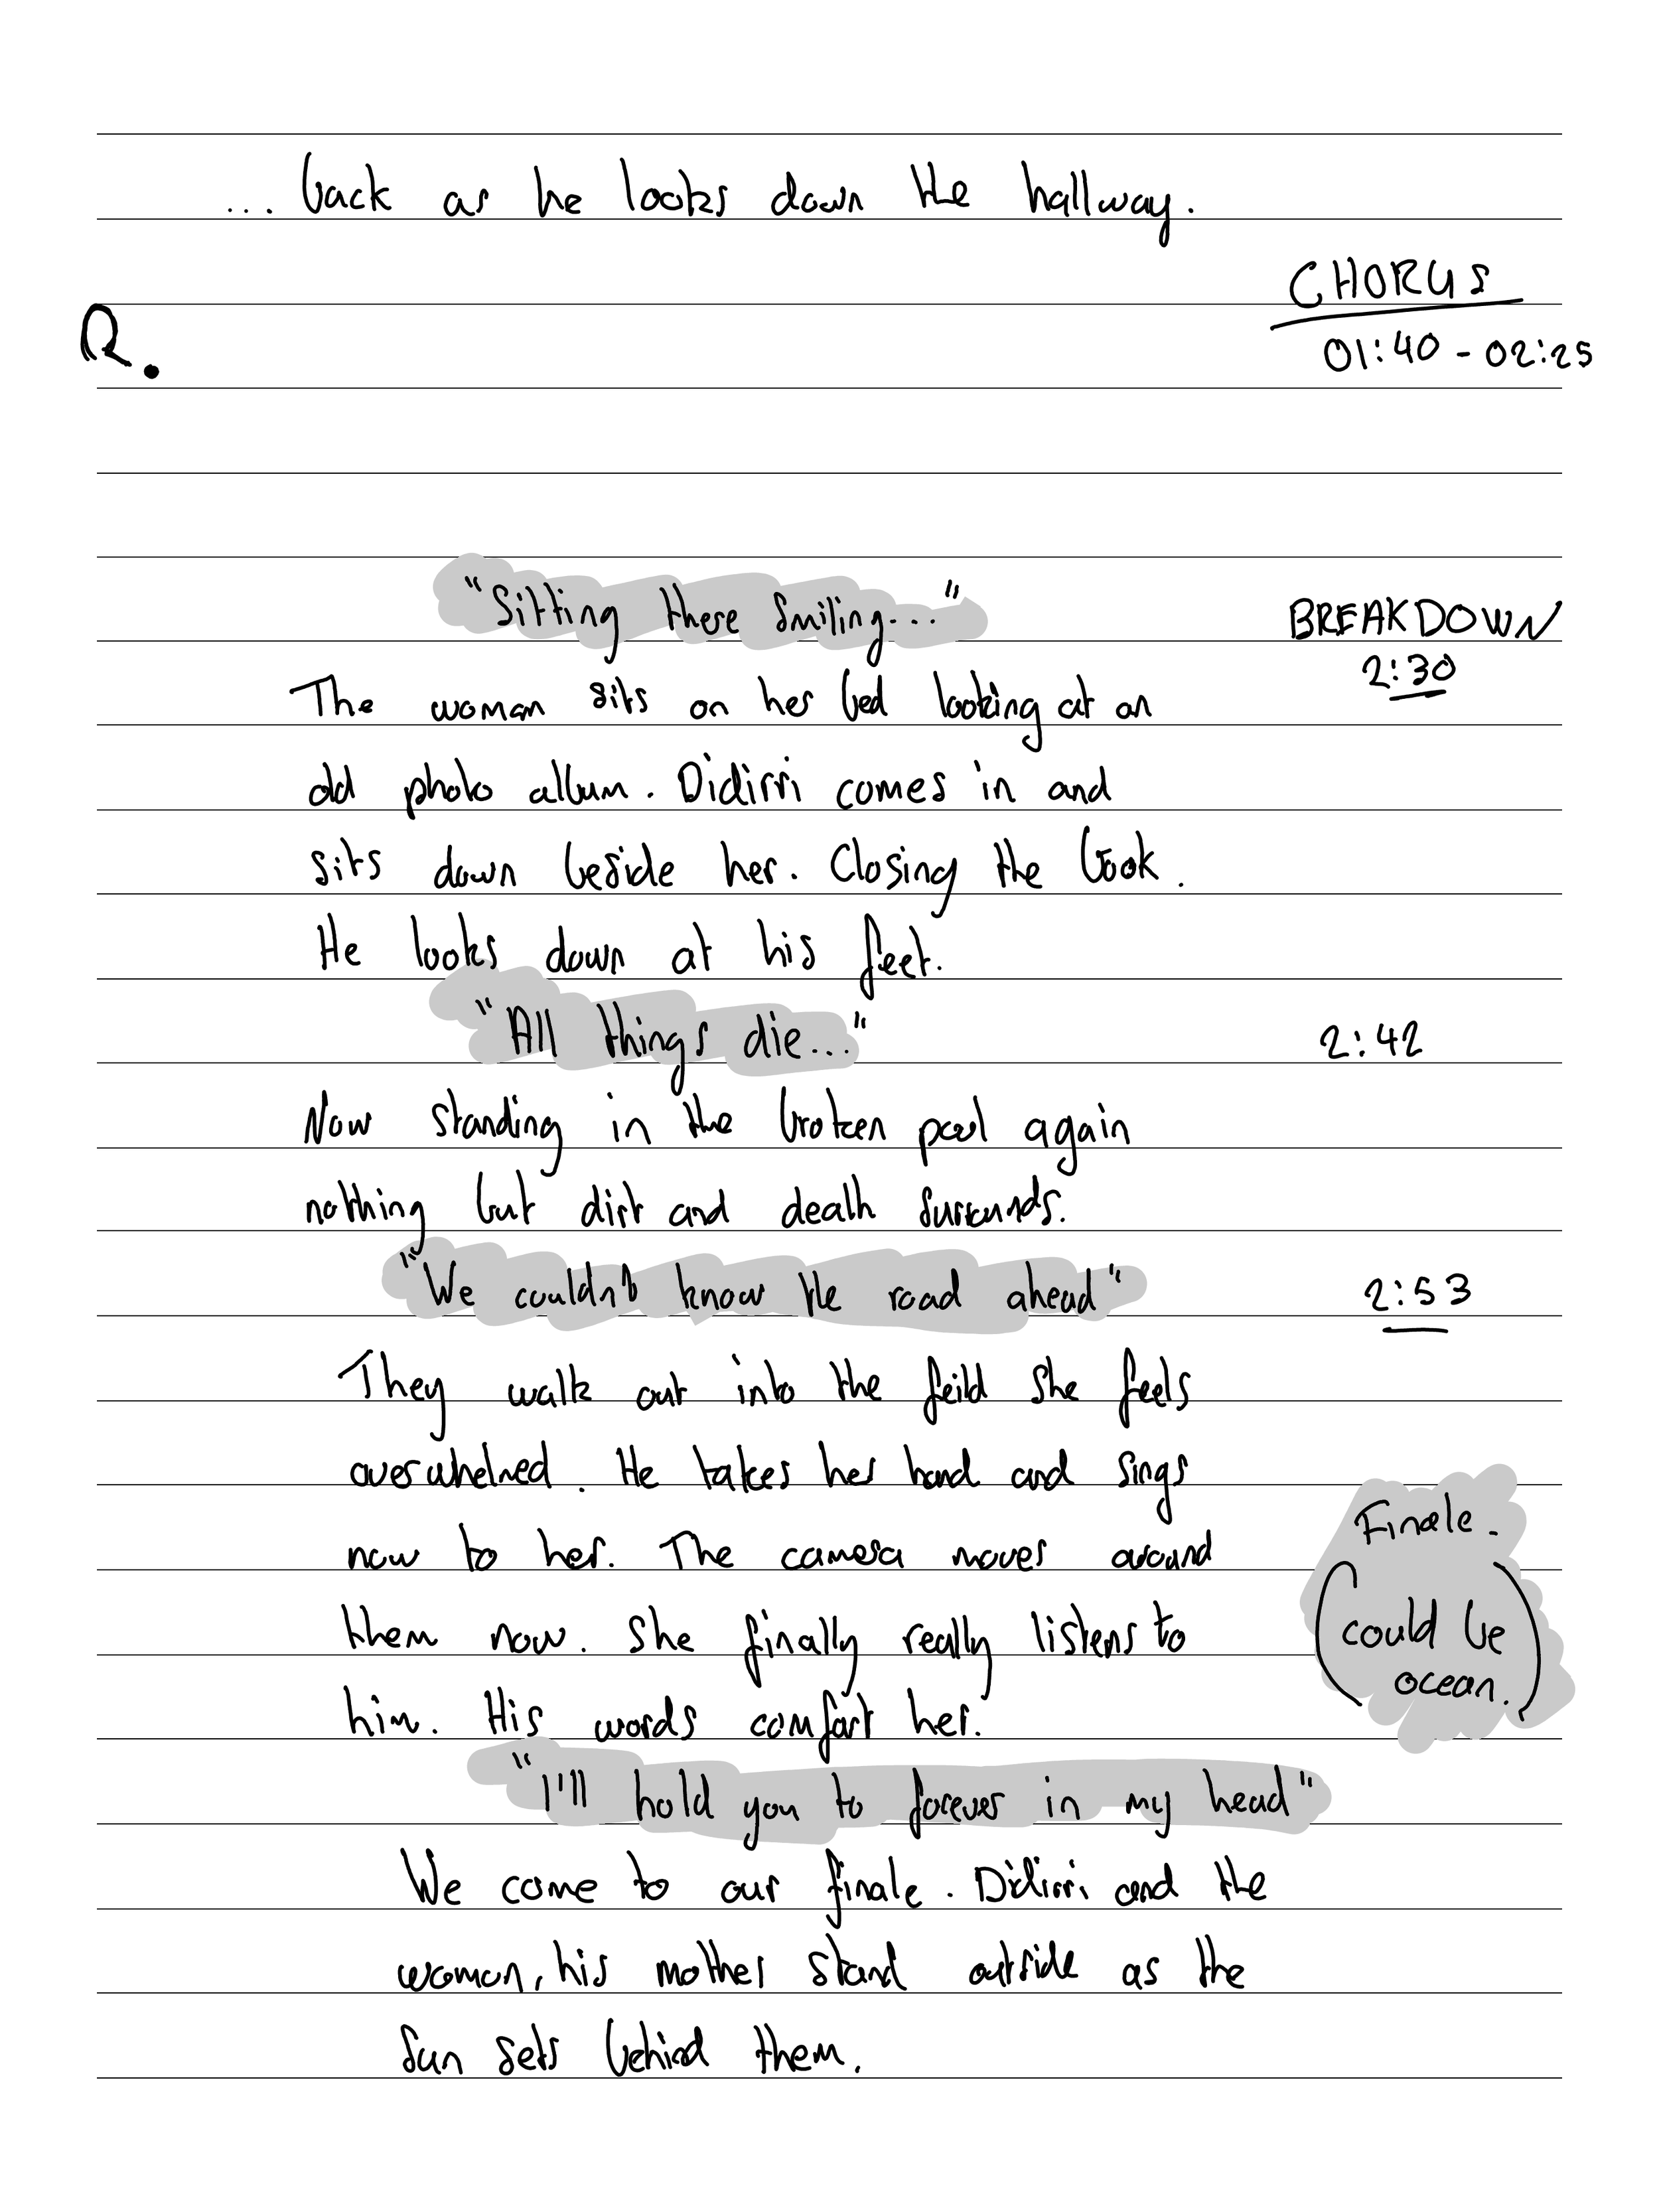 ... back as he looks down the hallway.
CHORUS
01:40 - 02:25
R.
"Sitting there smiling..."
BREAKDOWN
2:30
The woman sits on her bed looking at an
old photo album. Didirri comes in and
sits down beside her. Closing the book.
He looks down at his feet.
"All things die..."
2:42
Now standing in the broken pool again
nothing but dirt and death surrounds.
"We couldn't know the road ahead"
2:53
They walk out into the feild she feels
overwhelmed. He takes her hand and sings
now to her. The camera moves around
them now. She finally really listens to
him. His words comfort her.
Finale.
(could be
ocean.)
"I'll hold you to forever in my head"
We come to our finale. Didirri and the
woman, his mother stand outside as the
sun sets behind them.